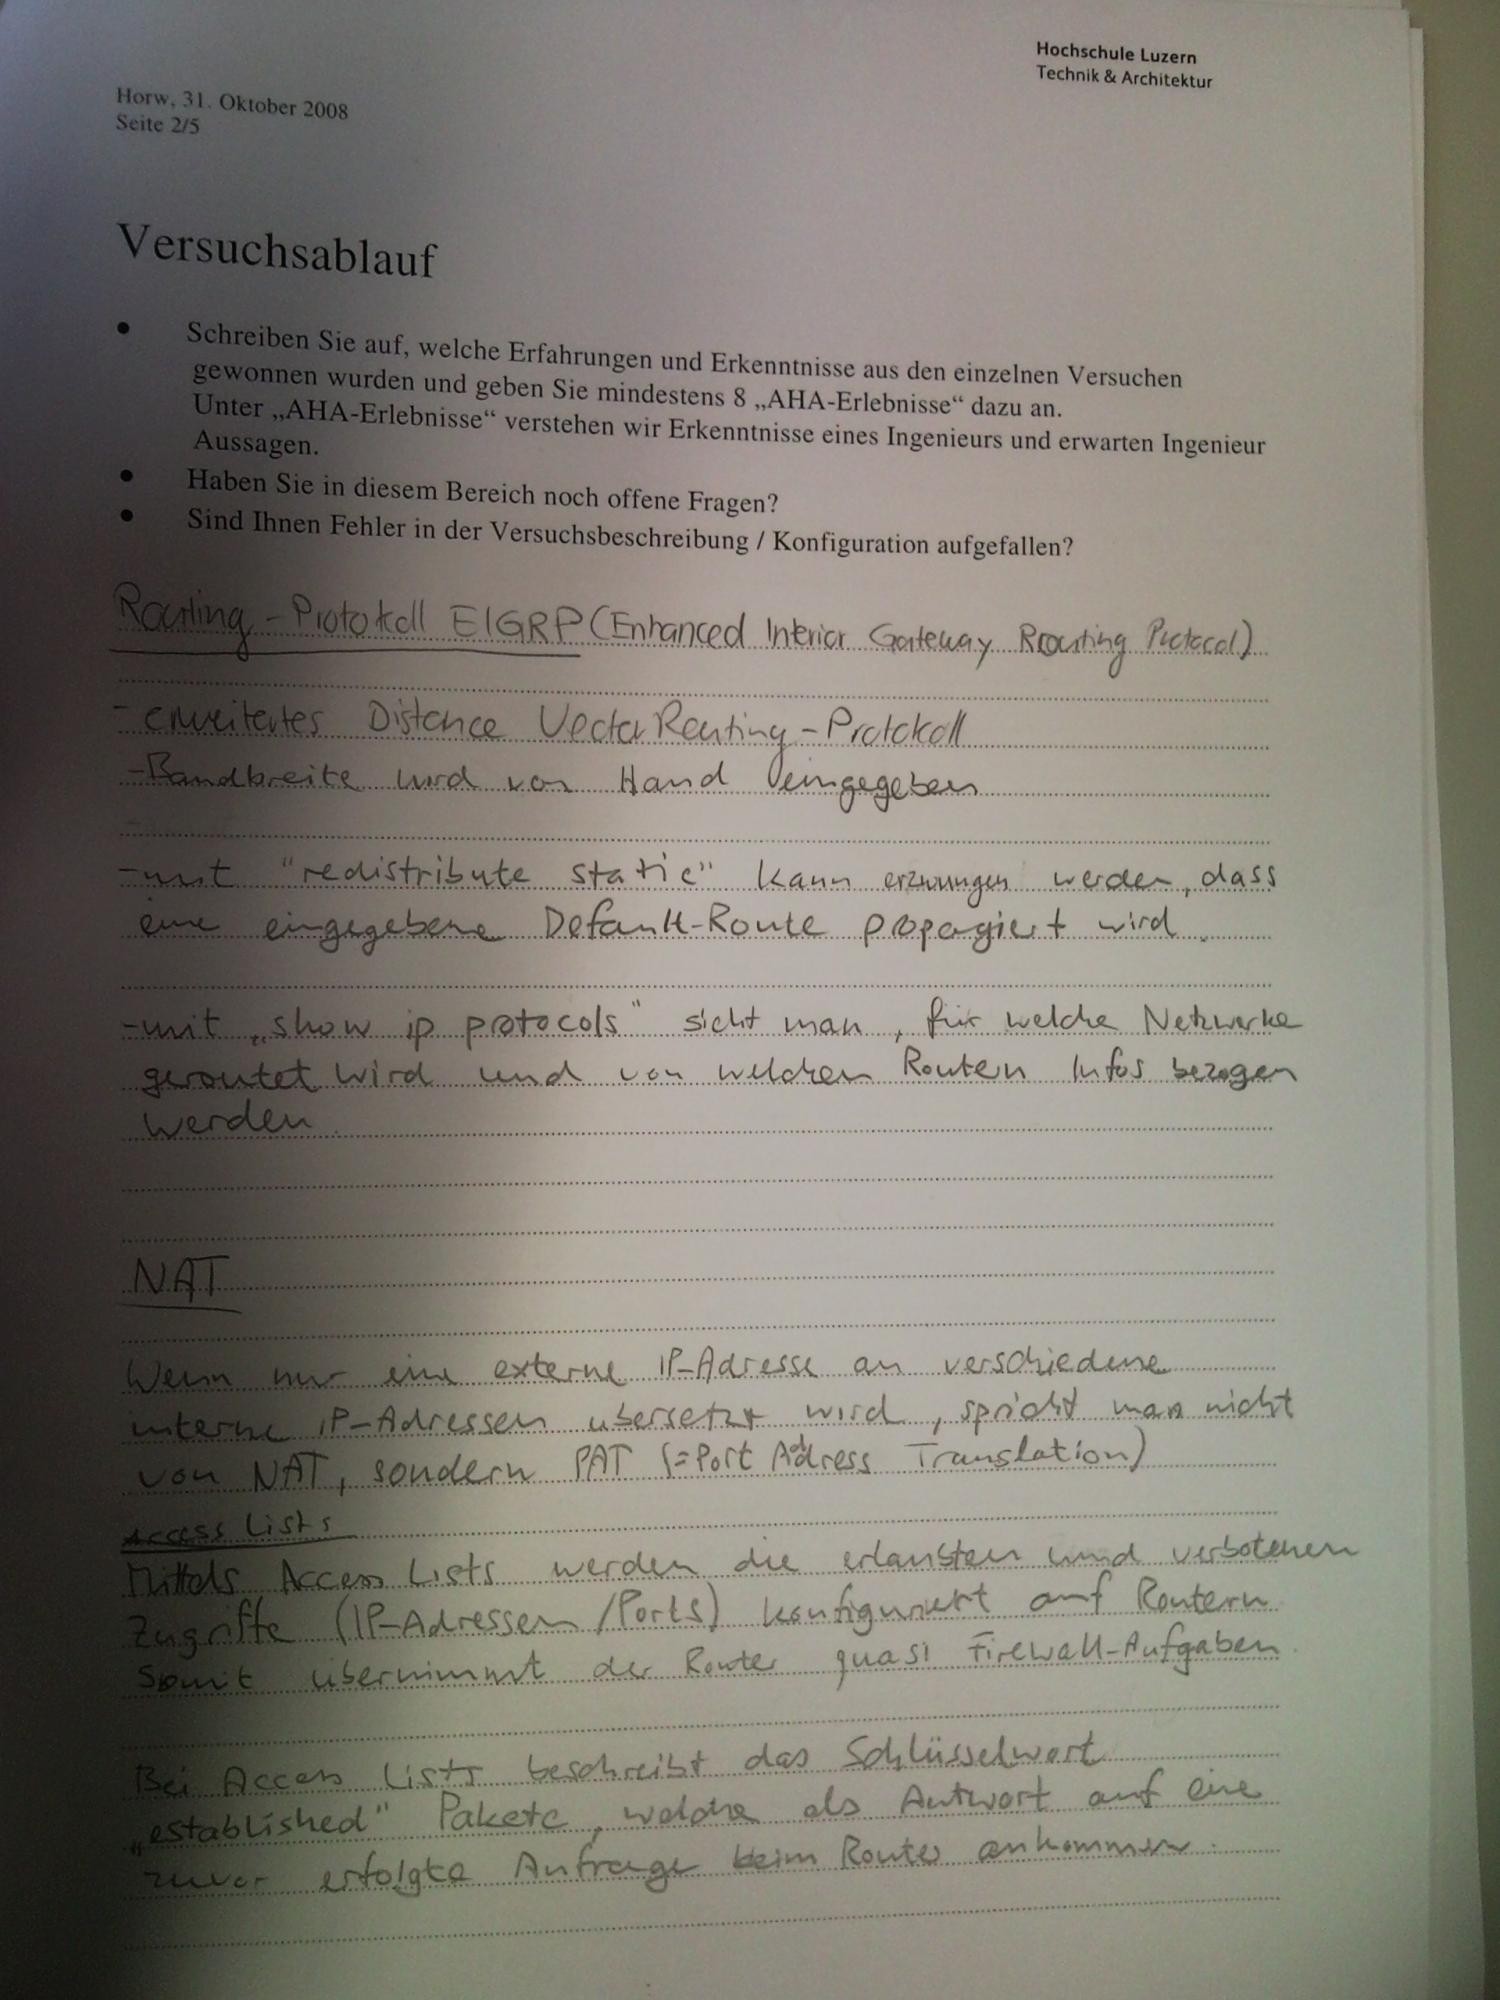 Hochschule Luzern
Technik & Architektur
Horw, 31. Oktober 2008
Seite 2/5
Versuchsablauf
• Schreiben Sie auf, welche Erfahrungen und Erkenntnisse aus den einzelnen Versuchen
gewonnen wurden und geben Sie mindestens 8 „AHA-Erlebnisse“ dazu an.
Unter „AHA-Erlebnisse“ verstehen wir Erkenntnisse eines Ingenieurs und erwarten Ingenieur
Aussagen.
• Haben Sie in diesem Bereich noch offene Fragen?
• Sind Ihnen Fehler in der Versuchsbeschreibung / Konfiguration aufgefallen?
Routing-Protokoll EIGRP (Enhanced Interior Gateway Routing Protocol)
- erweitertes Distance Vector Routing-Protokoll
- Bandbreite wird von Hand eingegeben
- mit "redistribute static" kann erzwungen werden, dass
eine eingegebene Default-Route propagiert wird.
- mit „show ip protocols" sieht man, für welche Netzwerke
geroutet wird und von welchen Routern Infos bezogen
werden.
NAT
Wenn nur eine externe IP-Adresse an verschiedene
interne IP-Adressen übersetzt wird, spricht man nicht
von NAT, sondern PAT (=Port Address Translation)
Access Lists
Mittels Access Lists werden die erlaubten und verbotenen
Zugriffe (IP-Adressen/Ports) konfiguriert auf Routern.
Somit übernimmt der Router quasi Firewall-Aufgaben.
Bei Access Lists beschreibt das Schlüsselwort
„established" Pakete, welche als Antwort auf eine
zuvor erfolgte Anfrage beim Router ankommen.